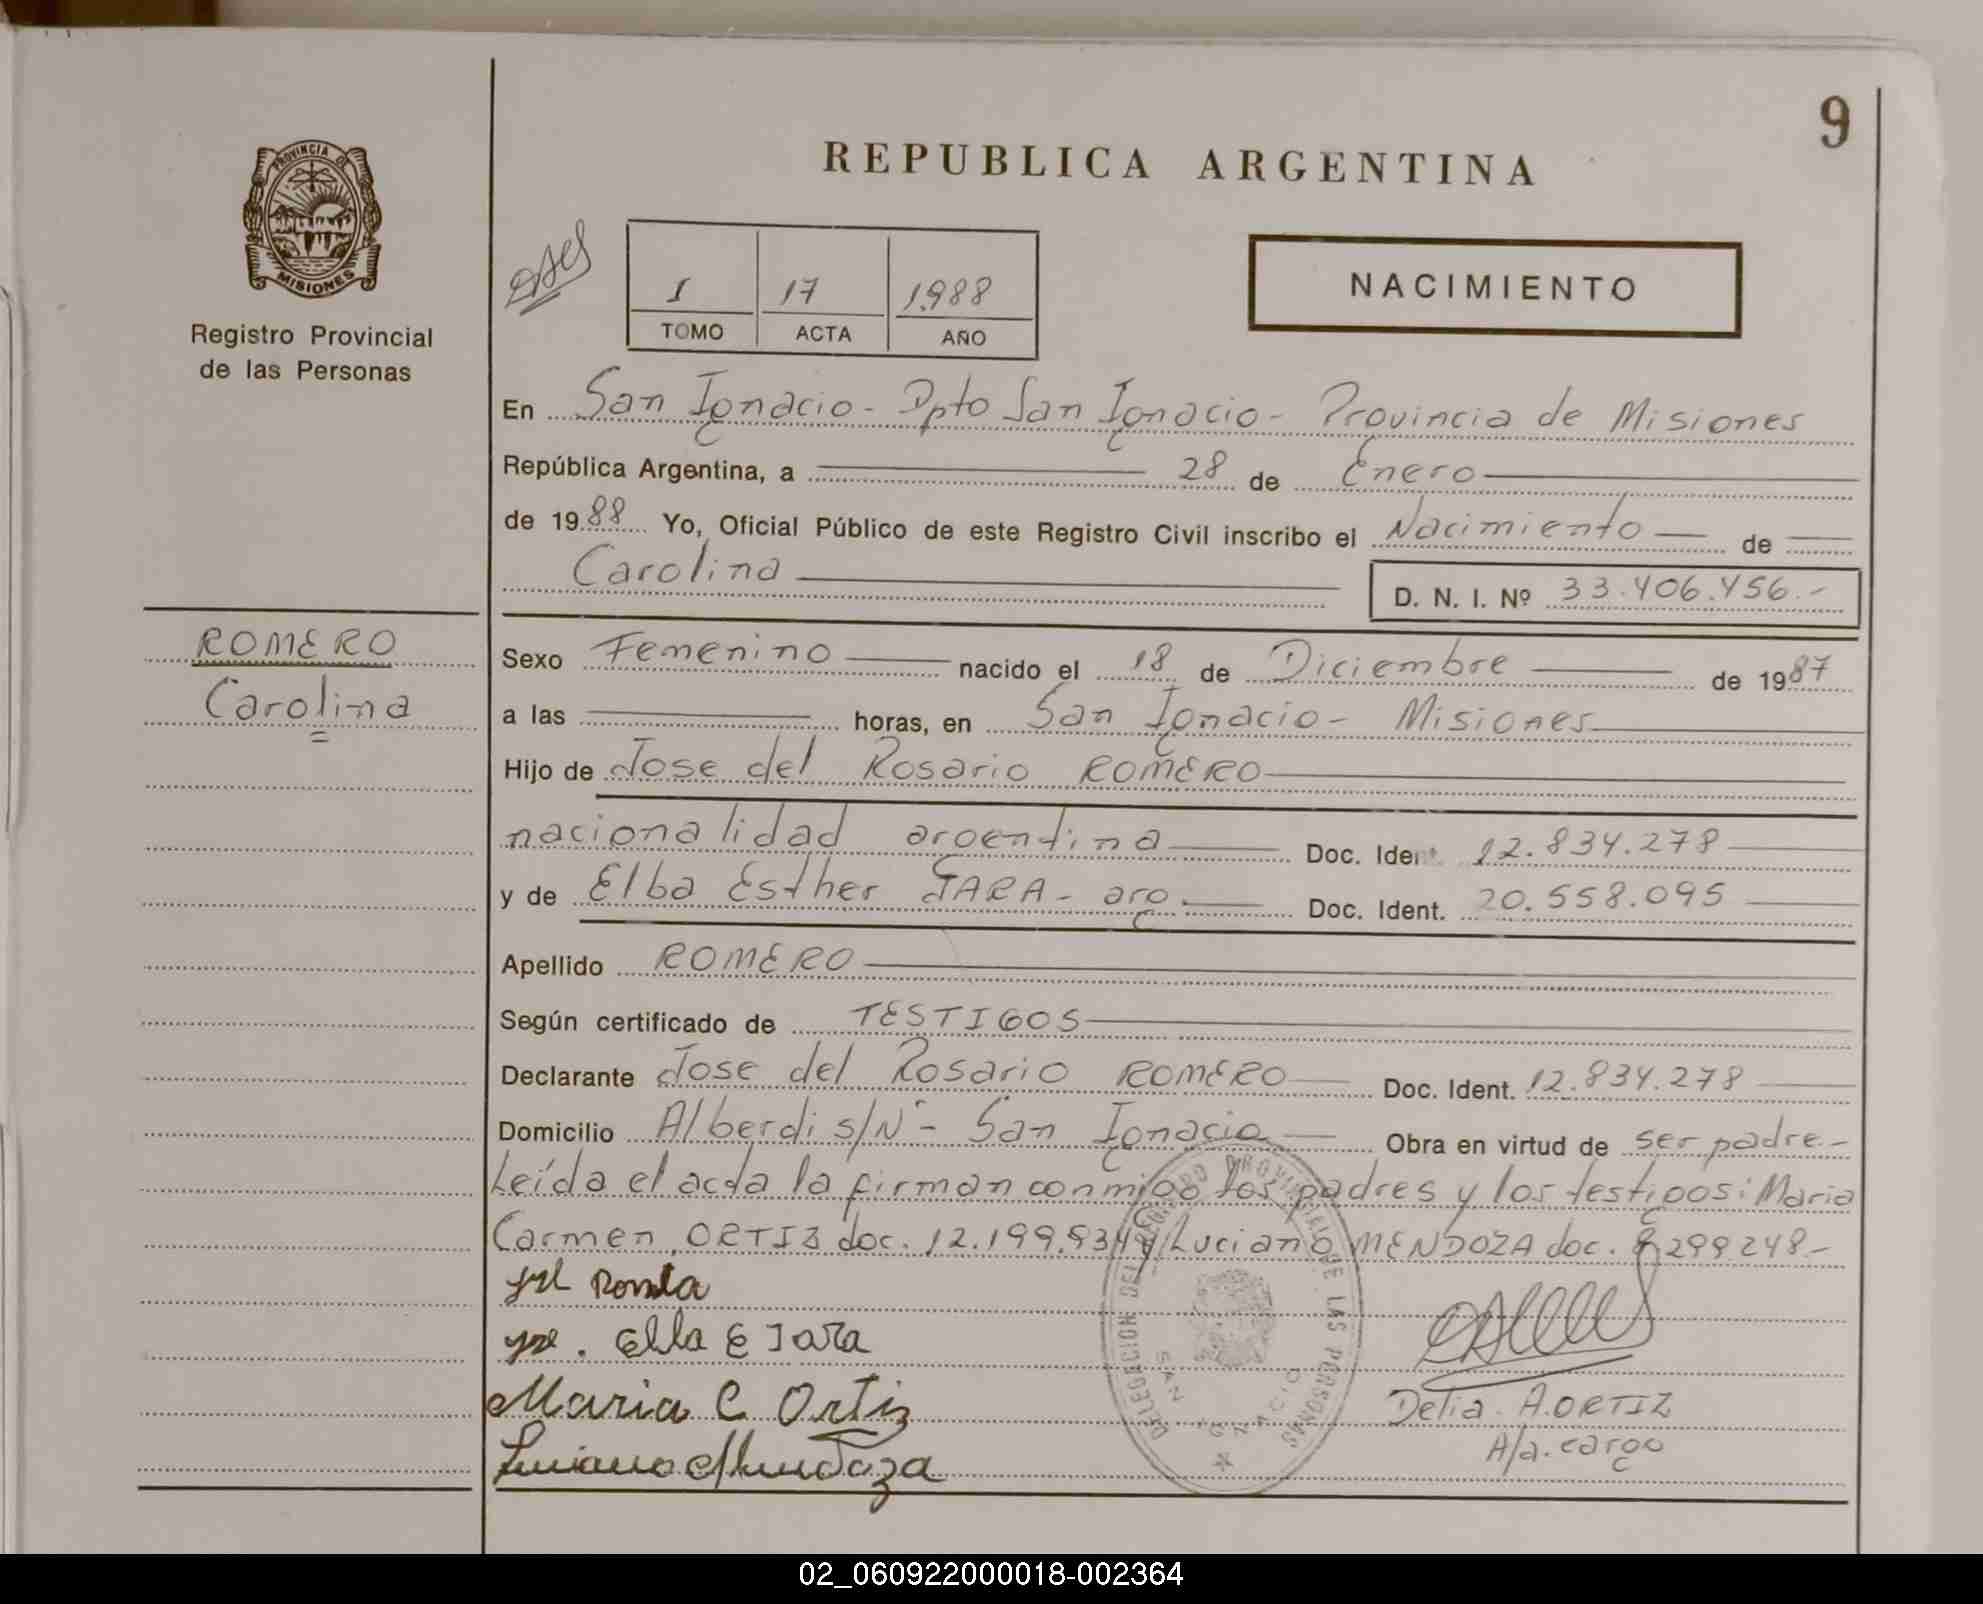 9
REPUBLICA ARGENTINA
PROVINCIA DE
MISIONES
Registro Provincial
de las Personas
I 17 1988
TOMO ACTA AÑO
NACIMIENTO
En San Ignacio - Dpto San Ignacio - Provincia de Misiones
República Argentina, a 28 de Enero
de 1988 Yo, Oficial Público de este Registro Civil inscribo el Nacimiento de
Carolina
D. N. I. Nº 33.406.456.-
ROMERO
Carolina
Sexo Femenino nacido el 18 de Diciembre de 1987
a las horas, en San Ignacio - Misiones
Hijo de Jose del Rosario ROMERO
nacionalidad argentina Doc. Ident. 12.834.278
y de Elba Esther JARA - arg. Doc. Ident. 20.558.095
Apellido ROMERO
Según certificado de TESTIGOS
Declarante Jose del Rosario ROMERO Doc. Ident. 12.834.278
Domicilio Alberdi s/Nº - San Ignacio Obra en virtud de ser padre.-
Leída el acta la firman conmigo los padres y los testigos: Maria
Carmen ORTIZ doc. y Luciano MENDOZA doc. 8299248-
Elba E Jara
Maria C Ortiz
Luciano Mendoza
DELEGACION DEL REGISTRO PROVINCIAL DE LAS PERSONAS
SAN IGNACIO
Delia A. ORTIZ
A/a. cargo
02_060922000018-002364